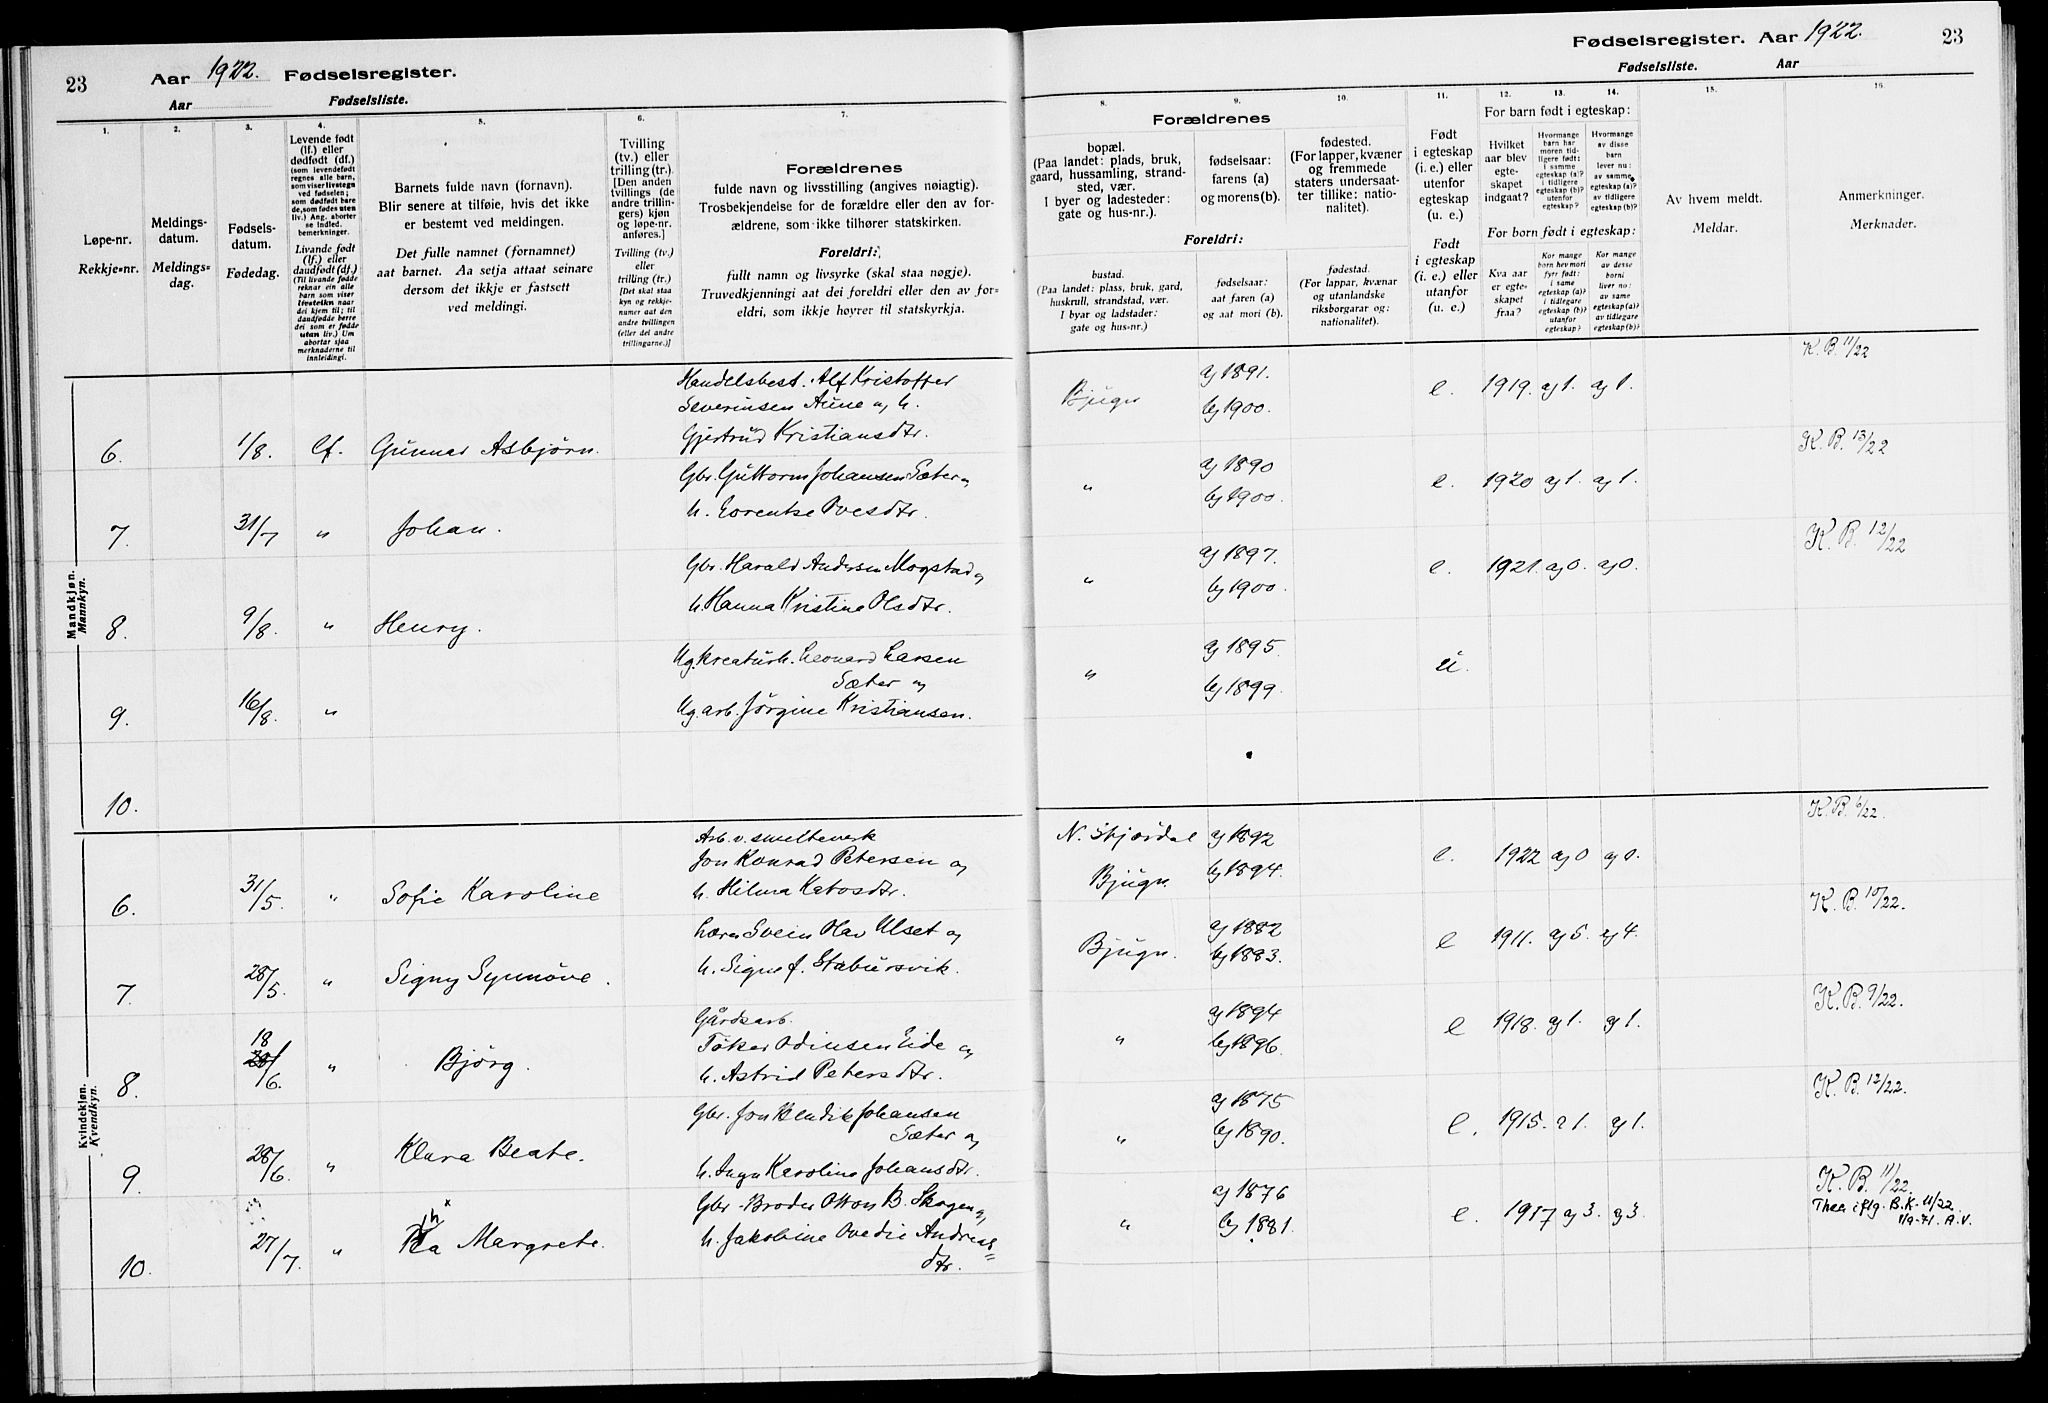 23
Aar 1922. Fødselsregister.
Aar Fødselsliste.
1.
2.
3.
4.
5.
6.
7.
Løpe-nr.
Rekkje-nr.
Meldings-
datum.
Meldings-
dag.
Fødsels-
datum.
Fødedag.
Levende født
(lf.) eller
dødfødt (df.)
(som levendefødt
regnes alle barn,
som viser livstegn
ved fødselen;
som dødfødt bare
de, som fødes uten
liv.) Ang. aborter
se indled.
bemerkninger.
Livande født
(lf.) eller
daudfødt (df.)
(Til livande fødde
reknar ein alle
barn som viser
livsteikn naar
dei kjem til; til
daudfødde berre
dei som er fødde
utan liv.) Um
abortar sjaa
merknaderne til
innleidingi.
Barnets fulde navn (fornavn).
Blir senere at tilføie, hvis det ikke
er bestemt ved meldingen.
Det fulle namnet (fornamnet)
aat barnet. Aa setja attaat seinare
dersom det ikkje er fastsett
ved meldingi.
Tvilling
(tv.) eller
trilling (tr.).
[Den anden
tvillings (de
andre trillin-
gers) kjøn
og løpe-nr.
anføres.]
Tvilling (tv.)
eller
trilling (tr.)
[Det skal staa
kyn og rekkje-
numer aat den
andre tvillingen
(eller dei andre
trillingarne.)]
Forældrenes
fulde navn og livsstilling (angives nøiagtig).
Trosbekjendelse for de forældre eller den av for-
ældrene, som ikke tilhører statskirken.
Foreldri:
fullt namn og livsyrke (skal staa nøgje).
Truvedkjenningi aat dei foreldri eller den av for-
eldri, som ikkje høyrer til statskyrkja.
Mandkjøn.
Mannkyn.
6. 1/8. lf. Gunnar Asbjørn.
Handelsbest. Alf Kristoffer
Severinsen Aune og h.
Gjertrud Kristiansdtr.
7. 31/7 " Johan.
Gbr. Guttorm Johansen Sæter og
h. Lorentse Ovesdtr.
8. 9/8. " Henry.
Gbr. Harald Andersen Mogstad og
h. Hanna Kristine Olsdtr.
9. 16/8. "
Ug. kreaturh. Leonard Larsen
Sæter og
Ug. arb. Jørgine Kristiansen.
10.
Kvindekjøn.
Kvendkyn.
6. 31/5. " Sofie Karoline
Arb. v. smelteverk
Jon Konrad Petersen og
h. Hilma Katosdtr.
7. 28/5. " Signy Synnøve.
Lærer Svein Olav Ulset og
h. Signe f. Stabursvik.
8. 18/6. " Bjørg.
Gårdsarb.
Odinsen Eide og
h. Astrid Petersdtr.
9. 28/6. " Klara Beate.
Gbr. Jon Bendik Johansen
Sæter og
h. Inga Karoline Johansdtr.
10. 27/7. " Margrete.
Gbr. Broder Otton B. Skogen og
h. Jakobine Ovedie Andreas=
dtr.
Fødselsregister. Aar 1922. 23
Fødselsliste. Aar
8.
9.
10.
11.
12.
13.
14.
15.
16.
Forældrenes
bopæl.
(Paa landet: plads, bruk,
gaard, hussamling, strand-
sted, vær.
I byer og ladesteder:
gate og hus-nr.).
fødselsaar:
farens (a)
og morens (b).
fødested.
(For lapper, kvæner
og fremmede
staters undersaat-
ter tillike: natio-
nalitet).
Foreldri:
bustad.
(Paa landet: plass, bruk, gard,
huskrull, strandstad, vær.
I byar og ladstader:
gate og hus-nr.)
fødselsaar:
aat faren (a)
og aat mori (b).
fødestad.
(For lappar, kvænar
og utanlandske
riksborgarar og:
nationalitet).
Født
i egteskap
(i. e.) eller
utenfor
egteskap
(u. e.)
Født
i egteskap
(i. e.) eller
utanfor
(u. e.)
For barn født i egteskap:
Hvilket
aar blev
egte-
skapet
indgaat?
Hvormange
barn har
moren tid-
ligere født:
i samme
egteskap (a)?
i tidligere
egteskap (b)?
utenfor
egteskap?
Hvormange
av disse
barn
lever nu:
av samme
egteskap (a)?
av tidligere
egteskap (b)?
For born født i egteskap:
Kva aar
er egte-
skapet
fraa?
Kor mange
born hev mori
fyrr født:
i same
egteskap (a)?
i tidlegare
egteskap (b)?
utanfor
egteskap?
Kor mange
av desse
borni
liver nu:
av same
egteskap (a)?
av tidlegare
egteskap (b)?
Av hvem meldt.
Meldar.
Anmerkninger.
Merknader.
Bjugn a) 1891. b) 1900. e. 1919. a) 1. a) 1. K. B. 11/22
" a) 1890 b) 1900. e. 1920 a) 1. a) 1. K. B. 13/22
" a) 1897. b) 1900. e. 1921. a) 0. a) 0. K. B. 12/22
" a) 1895. b) 1899. u.
N. Stjørdal a) 1892
Bjugn b) 1894. e. 1922 a) 0 a) 0. K. B. 6/22.
Bjugn. a) 1882 b) 1883. e 1911. a) 5. a) 4. K. B. 10/22.
" a) 1894 b) 1896. e 1918. a) 1. a) 1. K. B. 9/22.
" a) 1875 b) 1890. e. 1915. a 1. a) 1. K. B. 12/22.
" a) 1876 b) 1881. e. 1917 a) 3. a) 3. K. B. 11/22.
Thea iflg. B.K. 11/22
1/9-71. A.V.